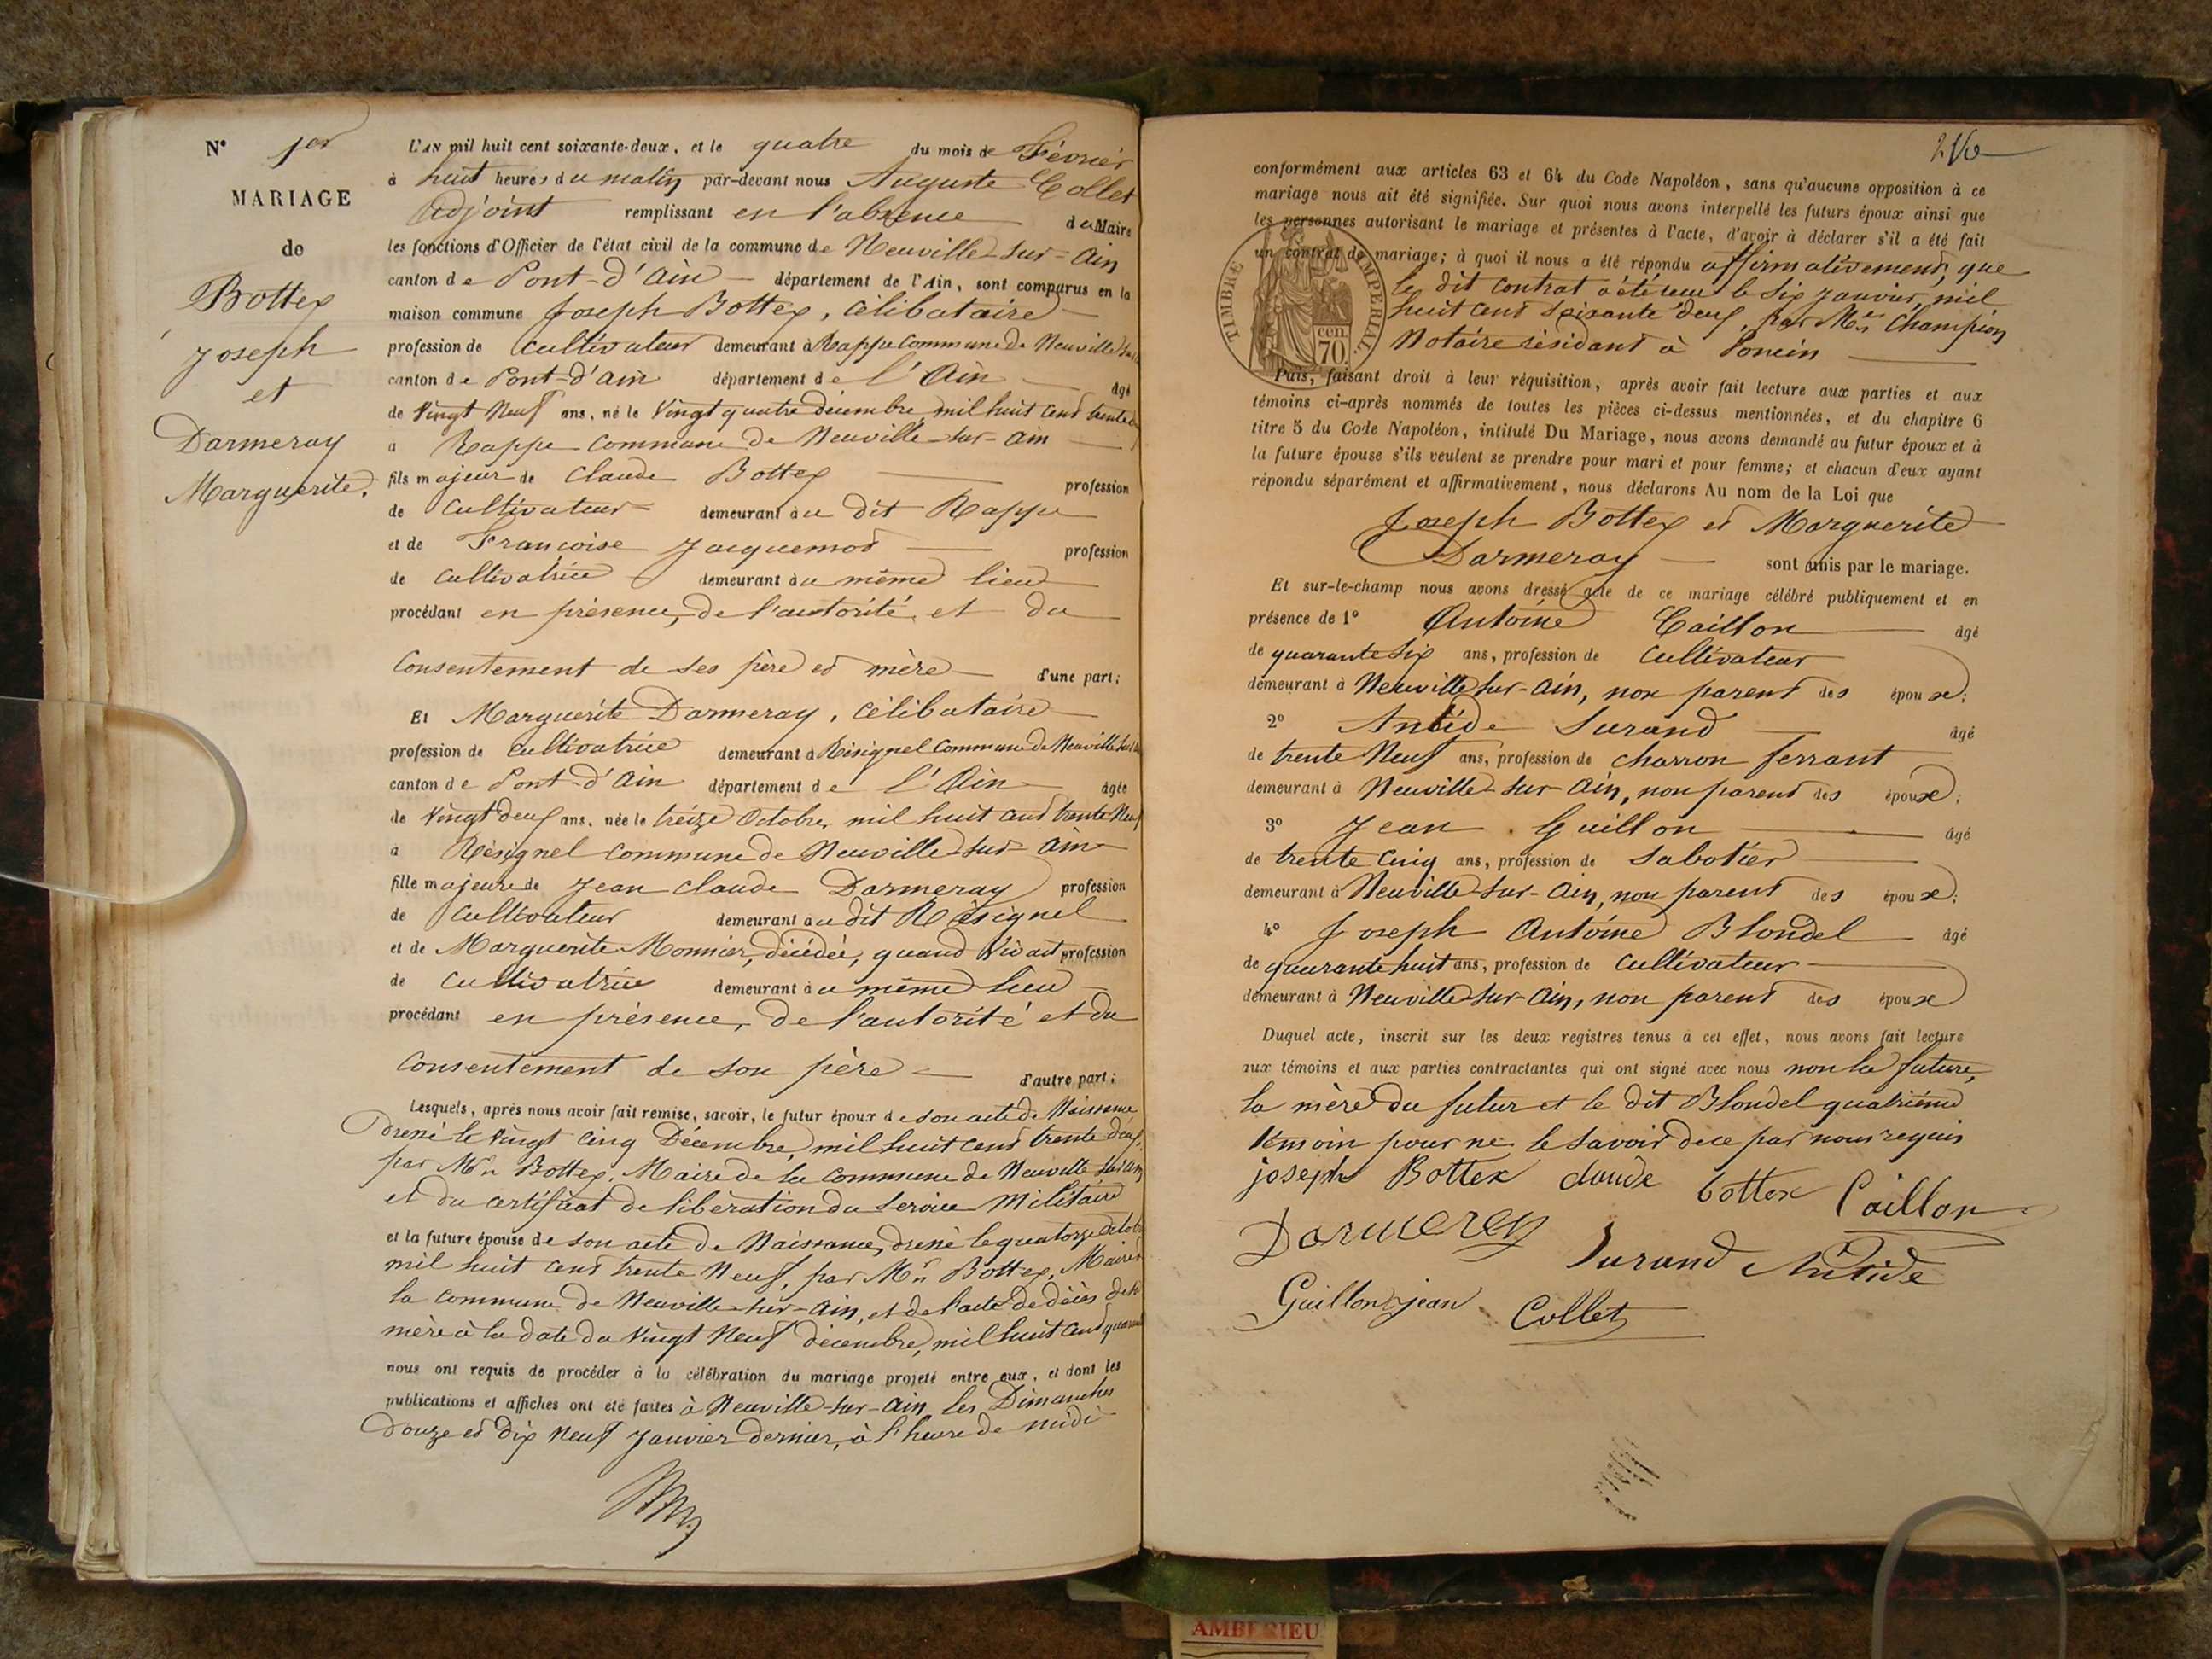 N° 1er
MARIAGE
de
Bottex
Joseph
et
Darmeray
Marguerite.
L'AN mil huit cent soixante-deux, et le quatre du mois de Février
à huit heures du matin par-devant nous Auguste Collet
Adjoint remplissant en l'absence du Maire
les fonctions d'Officier de l'état civil de la commune de Neuville-sur-Ain
canton de Pont-d'Ain département de l'Ain, sont comparus en la
maison commune Joseph Bottex, célibataire
profession de Cultivateur demeurant à Rappe Commune de Neuville
canton de Pont-d'Ain département de l'Ain âgé
de Vingt Neuf ans, né le Vingt quatre décembre mil huit cent trente
à Rappe Commune de Neuville-sur-Ain
fils majeur de Claude Bottex profession
de Cultivateur demeurant au dit Rappe
et de Françoise Jacquemod profession
de Cultivatrice demeurant au même lieu
procédant en présence, de l'autorité et du
Consentement de ses père et mère d'une part;
Et Marguerite Darmeray, célibataire
profession de Cultivatrice demeurant à Résignel Commune de Neuville
canton de Pont-d'Ain département de l'Ain âgée
de Vingt deux ans, née le treize Octobre mil huit cent trente Neuf
à Résignel Commune de Neuville-sur-Ain
fille majeure de Jean Claude Darmeray profession
de Cultivateur demeurant au dit Résignel
et de Marguerite Monnier, décédée, quand Vivait profession
de Cultivatrice demeurant au même lieu
procédant en présence, de l'autorité et du
Consentement de son père d'autre part;
Lesquels, après nous avoir fait remise, savoir, le futur époux de son acte de Naissance
dressé le Vingt Cinq Décembre, mil huit cent trente deux,
par Mr. Bottex, Maire de la Commune de Neuville sur Ain
et du certificat de libération du Service Militaire
et la future épouse de son acte de Naissance, dressé le quatorze Octobre
mil huit cent trente Neuf, par Mr. Bottex, Maire
la Commune de Neuville-sur-Ain, et de l'acte de décès de
mère à la date du Vingt Neuf décembre, mil huit cent
nous ont requis de procéder à la célébration du mariage projeté entre eux, et dont les
publications et affiches ont été faites à Neuville-sur-Ain les Dimanches
Douze et dix Neuf Janvier dernier, à l'heure de midi
conformément aux articles 63 et 64 du Code Napoléon, sans qu'aucune opposition à ce
mariage nous ait été signifiée. Sur quoi nous avons interpellé les futurs époux ainsi que
les personnes autorisant le mariage et présentes à l'acte, d'avoir à déclarer s'il a été fait
un contrat de mariage; à quoi il nous a été répondu affirmativement, que
le dit Contrat a été reçu le Six Janvier, mil
huit cent Soixante deux, par Me. Champion
Notaire résidant à Poncin
TIMBRE IMPERIAL
cen.
70.
Puis, faisant droit à leur réquisition, après avoir fait lecture aux parties et aux
témoins ci-après nommés de toutes les pièces ci-dessus mentionnées, et du chapitre 6
titre 5 du Code Napoléon, intitulé Du Mariage, nous avons demandé au futur époux et à
la future épouse s'ils veulent se prendre pour mari et pour femme; et chacun d'eux ayant
répondu séparément et affirmativement, nous déclarons Au nom de la Loi que
Joseph Bottex et Marguerite
Darmeray sont unis par le mariage.
Et sur-le-champ nous avons dressé acte de ce mariage célébré publiquement et en
présence de 1° Antoine Caillon âgé
de quarante Six ans, profession de Cultivateur
demeurant à Neuville-sur-Ain, non parent des époux;
2° Antide Durand âgé
de trente Neuf ans, profession de charron ferrant
demeurant à Neuville-sur-Ain, non parent des époux;
3° Jean Guillon âgé
de trente Cinq ans, profession de Sabotier
demeurant à Neuville-sur-Ain, non parent des époux;
4° Joseph Antoine Blondel âgé
de quarante huit ans, profession de Cultivateur
demeurant à Neuville-sur-Ain, non parent des époux
Duquel acte, inscrit sur les deux registres tenus à cet effet, nous avons fait lecture
aux témoins et aux parties contractantes qui ont signé avec nous non la future,
la mère du futur et le dit Blondel quatrième
témoin pour ne le savoir de ce par nous requis
joseph Bottex claude bottex Caillon
Darmerey Durand Antide
Guillon jean Collet
AMBERIEU